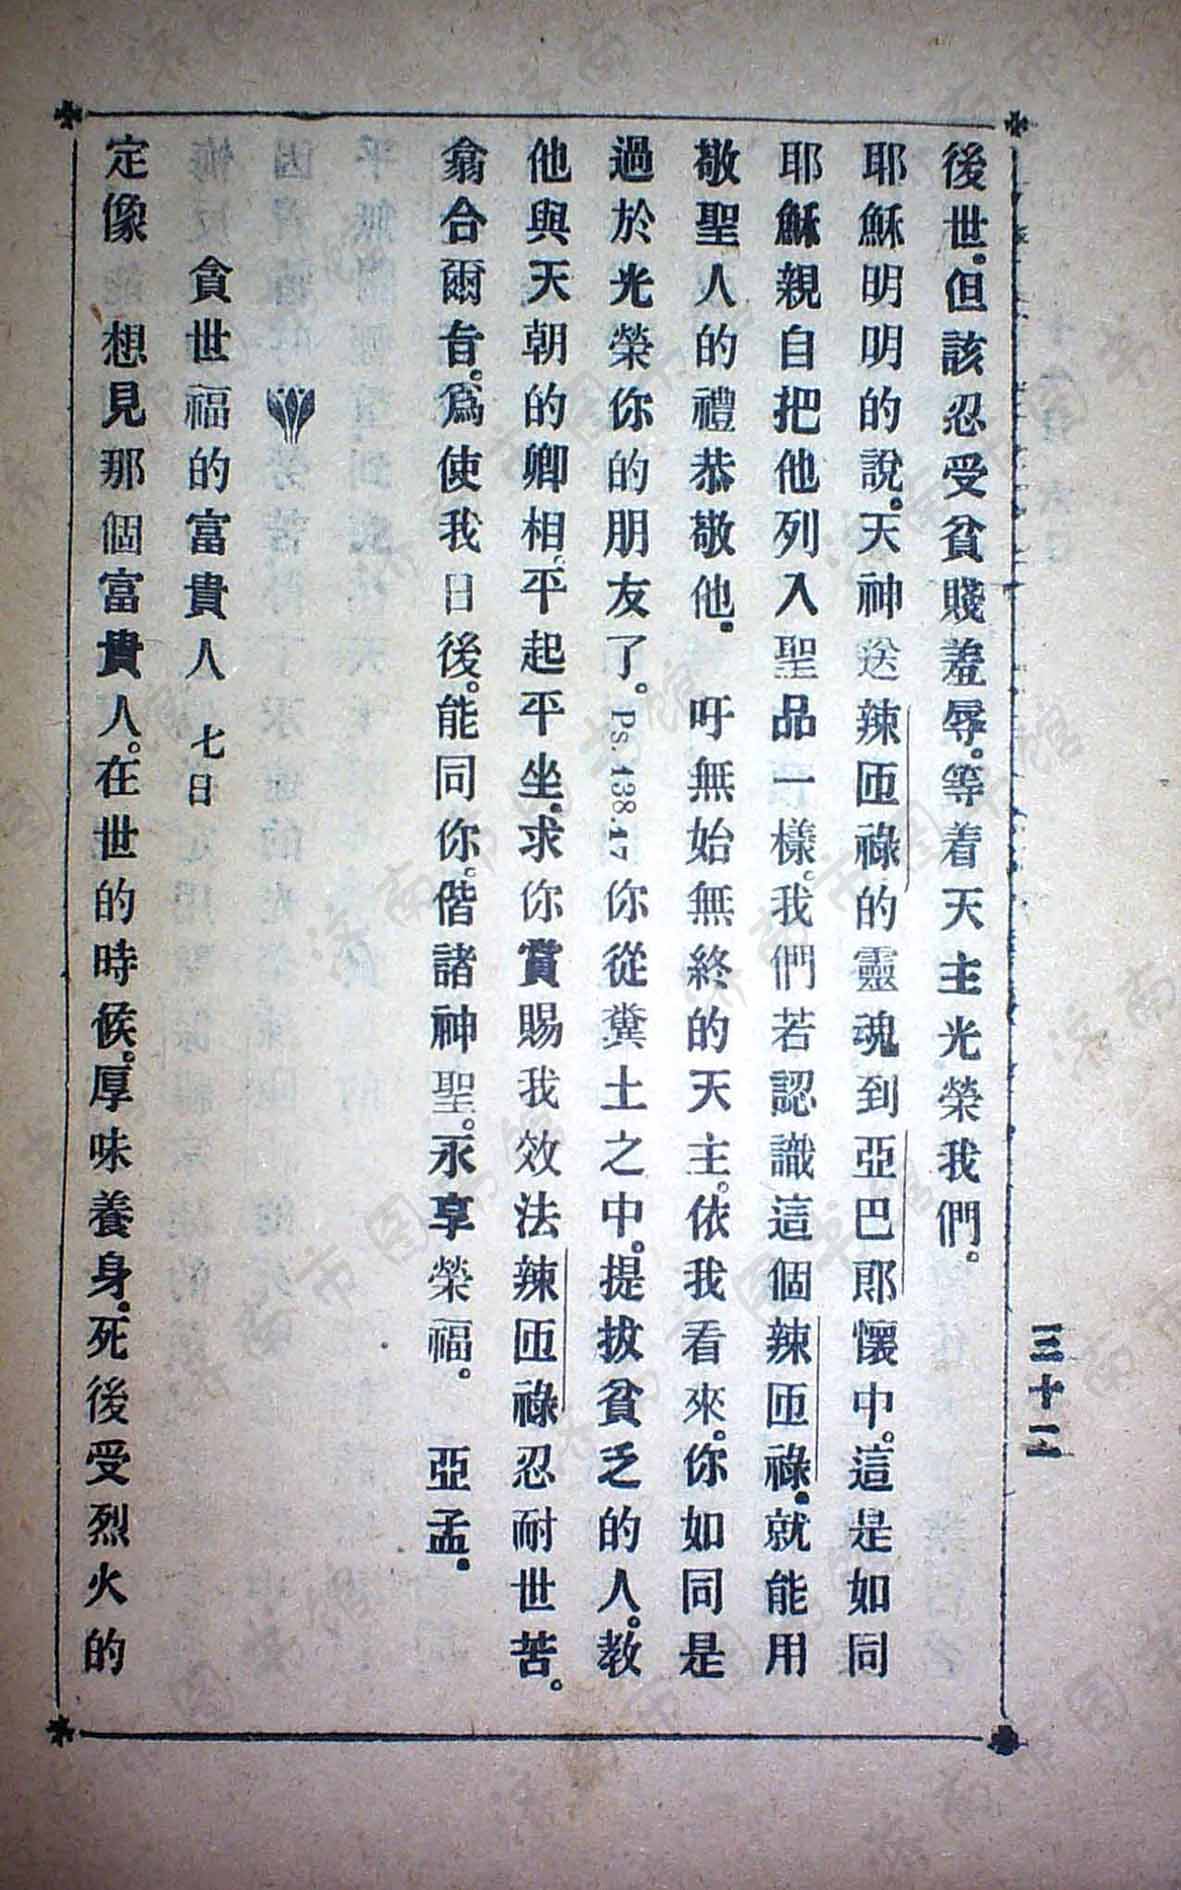 三十二
後世。但該忍受貧賤羞辱。等着天主光榮我們。
耶穌明明的說。天神送辣匝祿的靈魂到亞巴郎懷中。這是如同
耶穌親自把他列入聖品一樣。我們若認識這個辣匝祿。就能用
敬聖人的禮恭敬他。 吁無始無終的天主。依我看來。你如同是
過於光榮你的朋友了。Ps. 138.17 你從糞土之中。提拔貧乏的人。教
他與天朝的卿相。平起平坐。求你賞賜我效法辣匝祿忍耐世苦。
翕合爾旨。爲使我日後。能同你。偕諸神聖。永享榮福。 亞孟。
貪世福的富貴人 七日
定像 想見那個富貴人。在世的時候。厚味養身。死後受烈火的
济南市图书馆